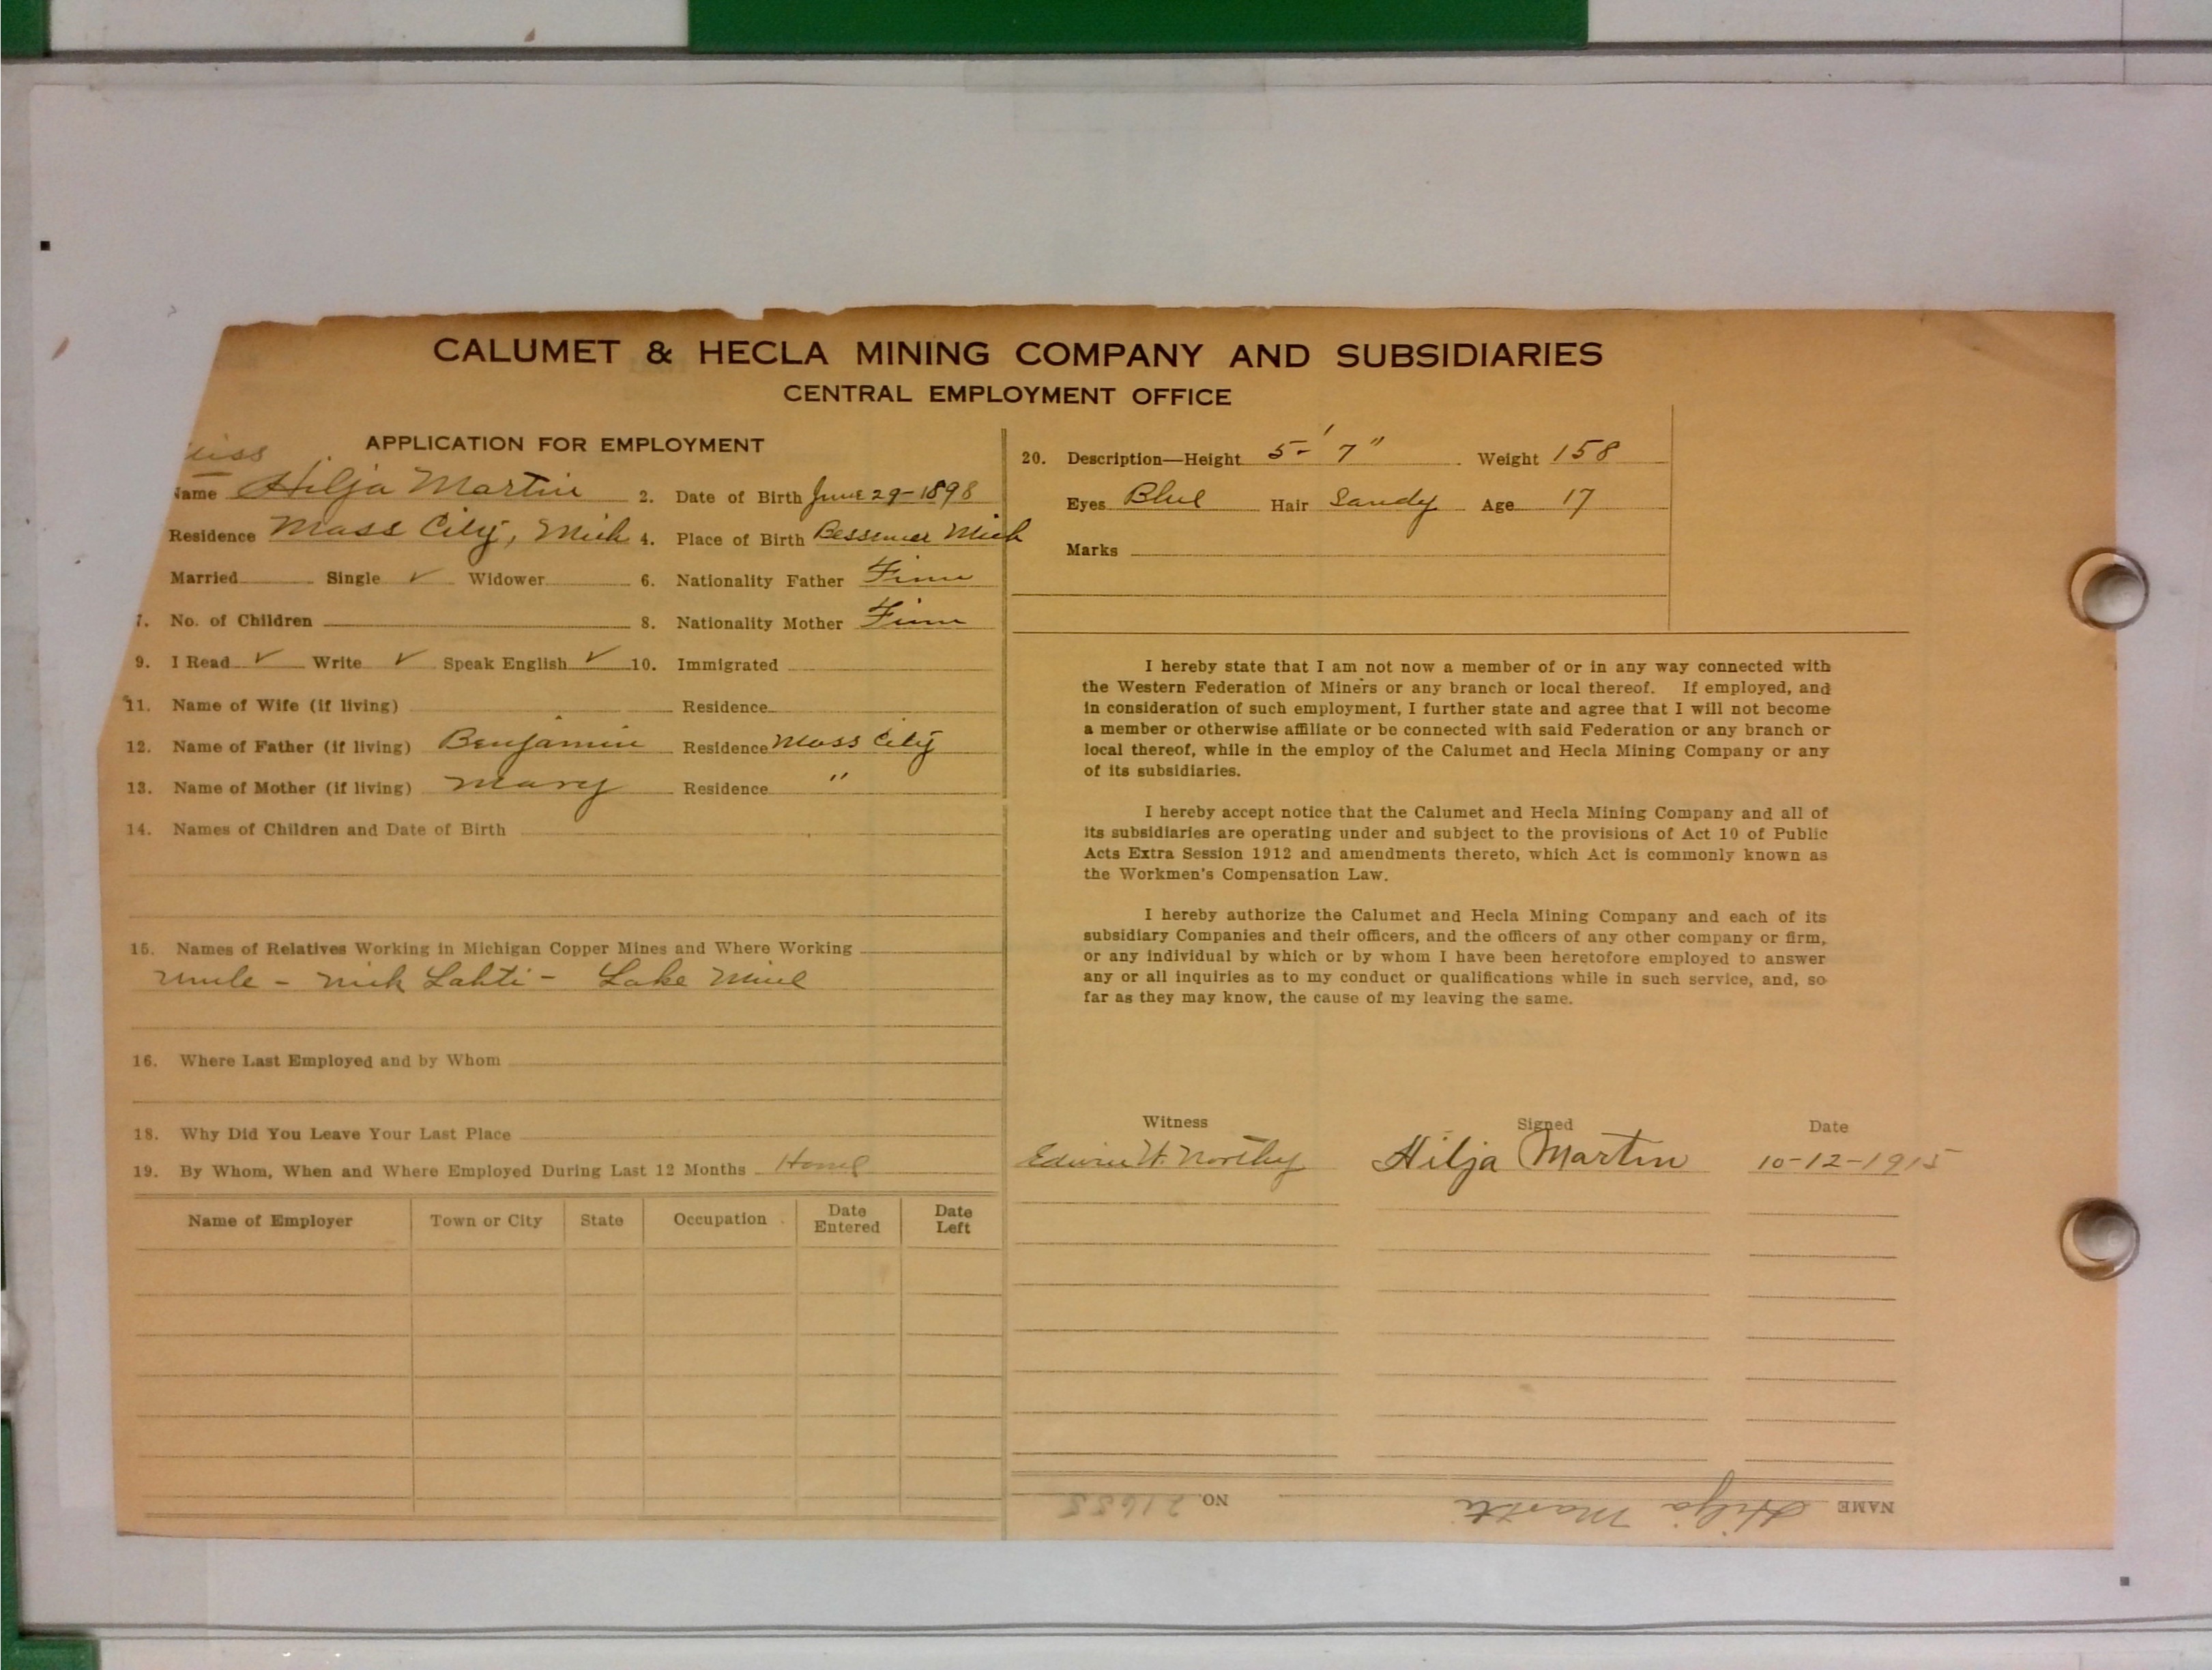 CALUMET & HECLA MINING COMPANY AND SUBSIDIARIES
CENTRAL EMPLOYMENT OFFICE
APPLICATION FOR EMPLOYMENT
Name Hilja Martin 2. Date of Birth June 29-1898
Residence Mass City, Mich 4. Place of Birth Bessemer Mich
Married Single ✓ Widower 6. Nationality Father Finn
7. No. of Children 8. Nationality Mother Finn
9. I Read ✓ Write ✓ Speak English ✓ 10. Immigrated
11. Name of Wife (if living) Residence
12. Name of Father (if living) Benjamin Residence Mass City
13. Name of Mother (if living) Mary Residence "
14. Names of Children and Date of Birth
15. Names of Relatives Working in Michigan Copper Mines and Where Working
Uncle - Nick Lahti - Lake Mine
16. Where Last Employed and by Whom
18. Why Did You Leave Your Last Place
19. By Whom, When and Where Employed During Last 12 Months Home
Name of Employer Town or City State Occupation Date Entered Date Left
20. Description—Height 5-' 7" Weight 158
Eyes Blue Hair Sandy Age 17
Marks
I hereby state that I am not now a member of or in any way connected with
the Western Federation of Miners or any branch or local thereof. If employed, and
in consideration of such employment, I further state and agree that I will not become
a member or otherwise affiliate or be connected with said Federation or any branch or
local thereof, while in the employ of the Calumet and Hecla Mining Company or any
of its subsidiaries.
I hereby accept notice that the Calumet and Hecla Mining Company and all of
its subsidiaries are operating under and subject to the provisions of Act 10 of Public
Acts Extra Session 1912 and amendments thereto, which Act is commonly known as
the Workmen's Compensation Law.
I hereby authorize the Calumet and Hecla Mining Company and each of its
subsidiary Companies and their officers, and the officers of any other company or firm,
or any individual by which or by whom I have been heretofore employed to answer
any or all inquiries as to my conduct or qualifications while in such service, and, so
far as they may know, the cause of my leaving the same.
Witness Signed Date
Edwin W. Northey Hilja Martin 10-12-1915
NAME Hilja Martin NO. 21655